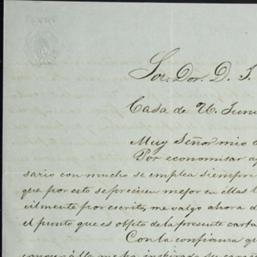 Sor. Dor. D. J.
Casa de U. Juni
Muy Señor mio
Por economisar
sario con mucho se emplea siempre
que por esto se precien mejor en ellas
cilmente por escrito, me valgo ahora d
el punto que es objeto de la presente carta
Con la confianza q